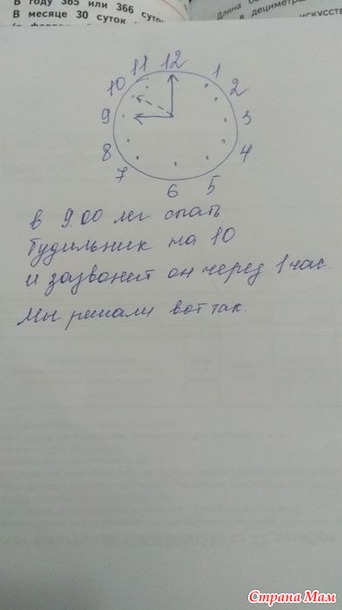 В году 365 или 366 суток
В месяце 30 суток
длина
в дециметра
искусств
11 12 1
10 2
9 3
8 4
7 6 5
В 9.00 лёг спать
Будильник на 10
и зазвонит он через 1 час.
Мы решали вот так.
Страна Мам